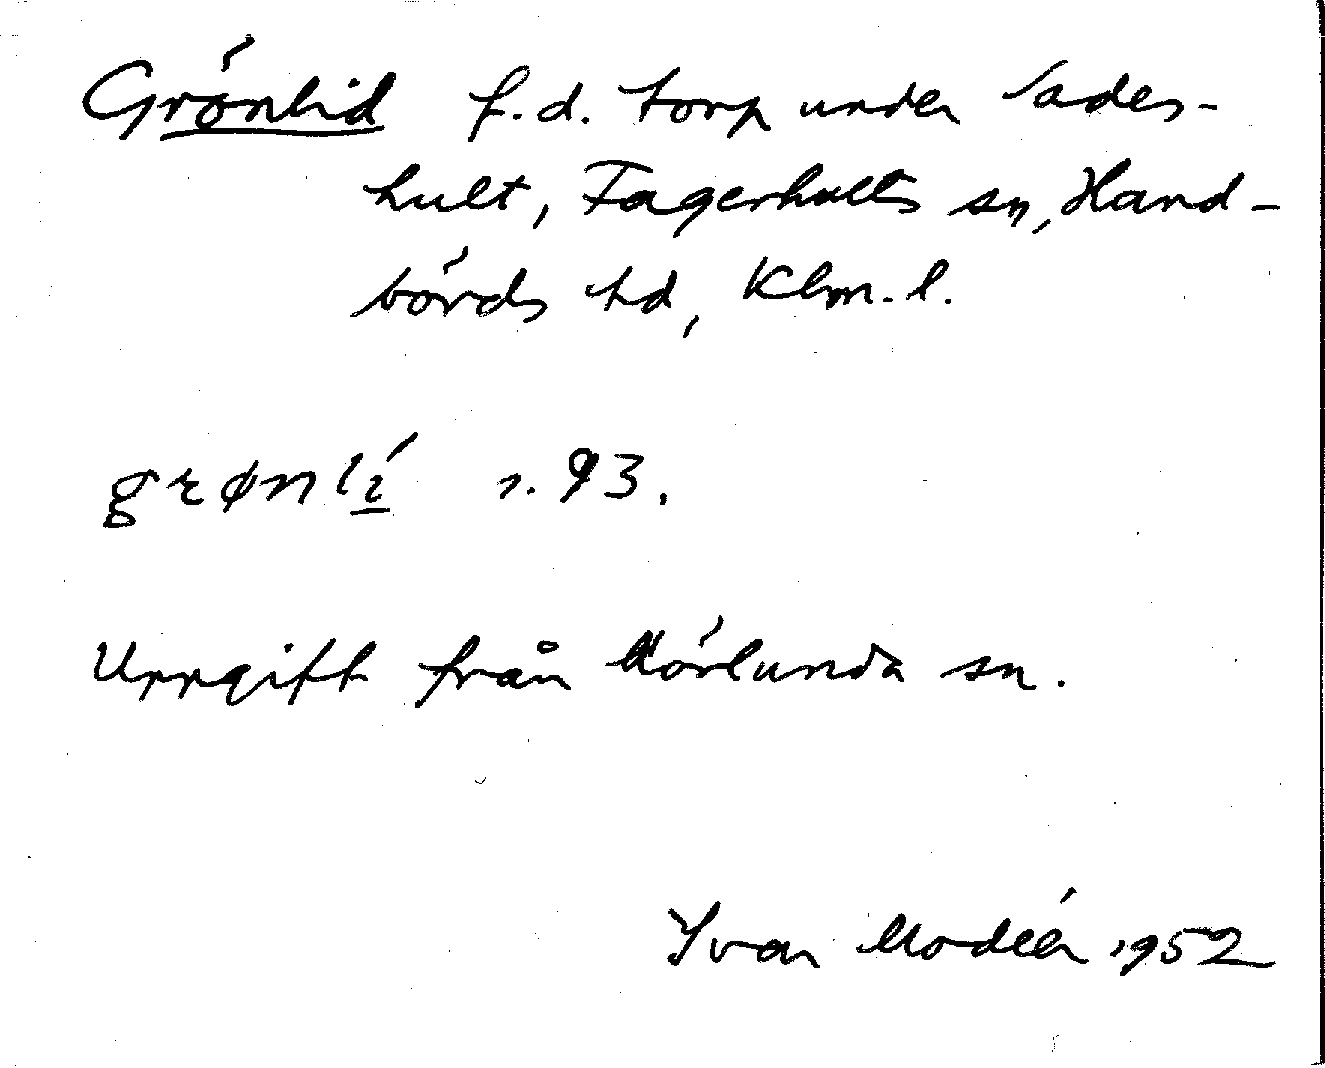 Grönlid f.d. torp under Sades-
hult, Fagerhults sn, Hand-
börds hd, Klm. l.
grønlí s. 93.
Uppgift från Mörlunda sn.
Yvar Modéer 1952